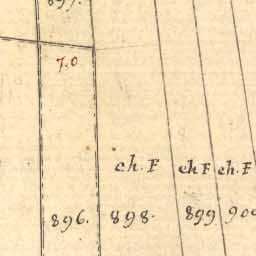 897.
7.0
ch. F ch F ch. F
896. 898. 899 900